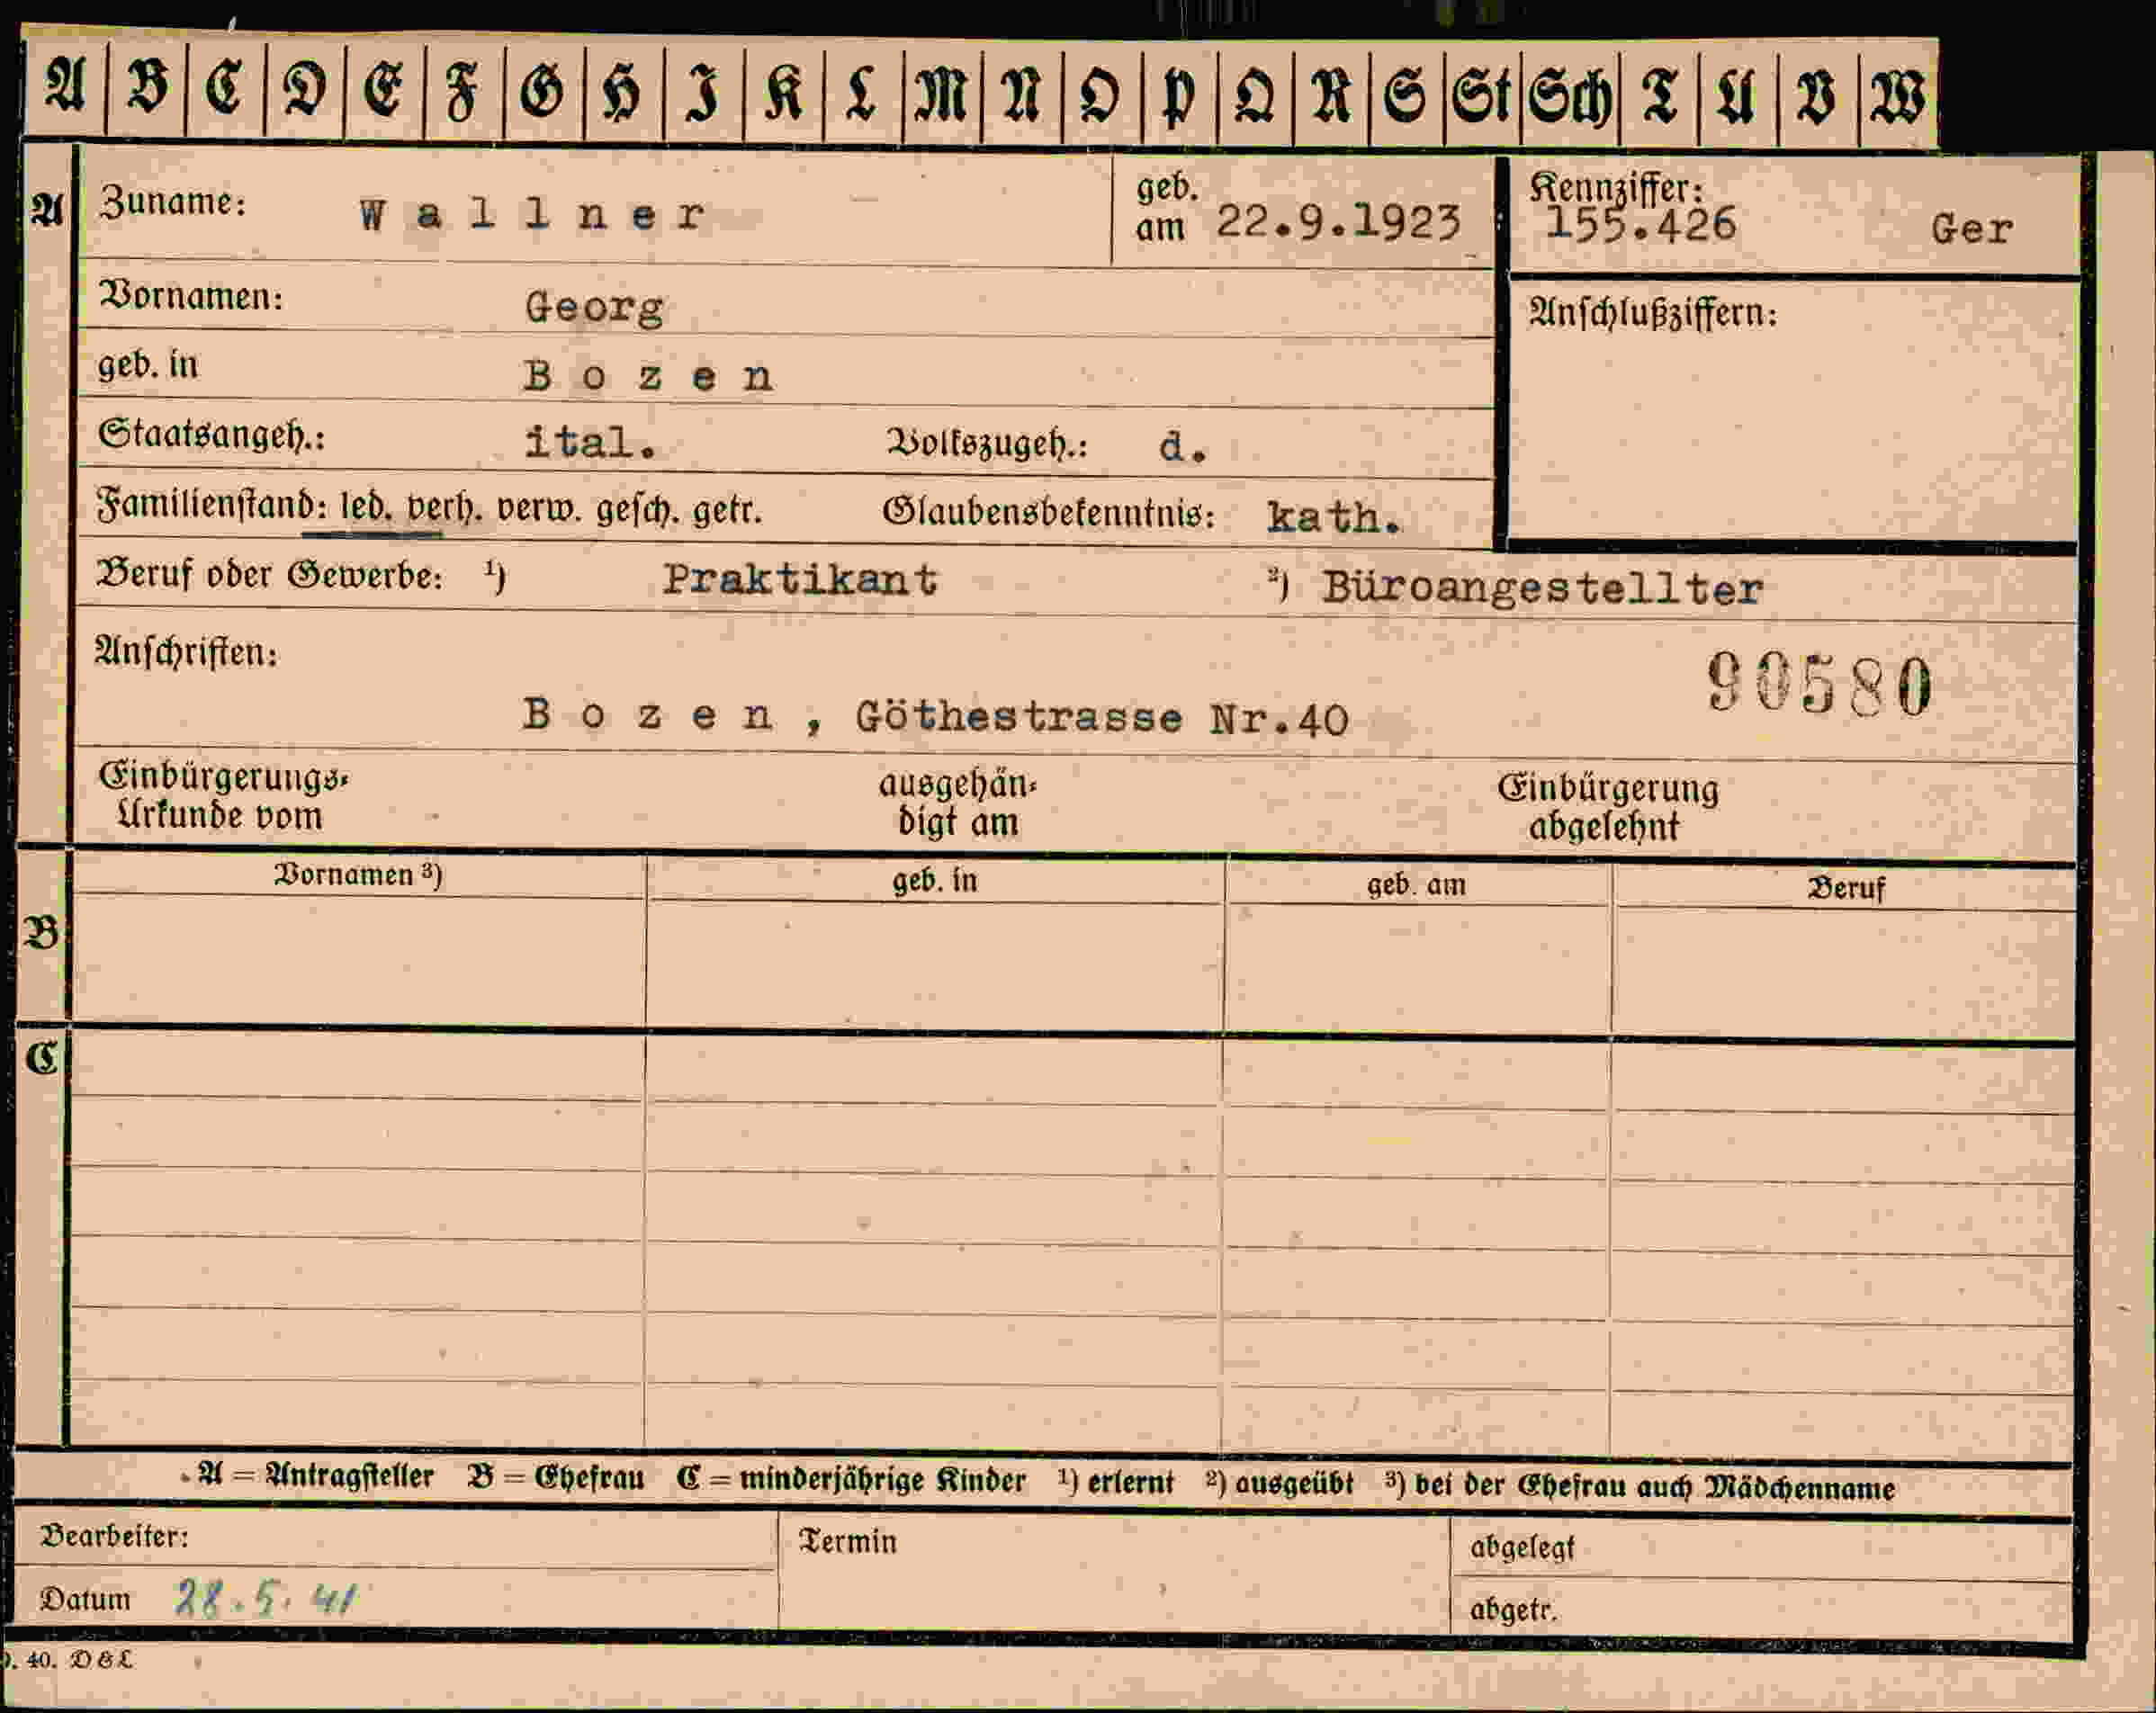 A B C D E F G H I K L M N O P Q R S St Sch T U V W
A Zuname: Wallner geb. am 22.9.1923 Kennziffer: 155.426 Ger
Vornamen: Georg Anschlußziffern:
geb. in Bozen
Staatsangeh.: ital. Volkszugeh.: d.
Familienstand: led. verh. verw. gesch. getr. Glaubensbekenntnis: kath.
Beruf oder Gewerbe: ¹) Praktikant ²) Büroangestellter
Anschriften: 90580
Bozen, Göthestrasse Nr.40
Einbürgerungs- ausgehän- Einbürgerung
Urkunde vom digt am abgelehnt
Vornamen ³) geb. in geb. am Beruf
B
C
A = Antragsteller B = Ehefrau C = minderjährige Kinder ¹) erlernt ²) ausgeübt ³) bei der Ehefrau auch Mädchenname
Bearbeiter: Termin abgelegt
Datum 28.5.41 abgetr.
. 40. D & L